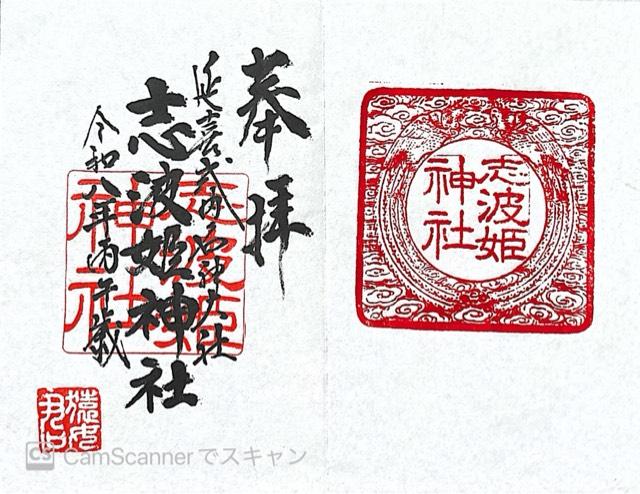 奉拝
延喜式内名神大社
志波姫神社
令和八年丙午歳
志波姫
神社
志波姫
神社
CamScannerでスキャン